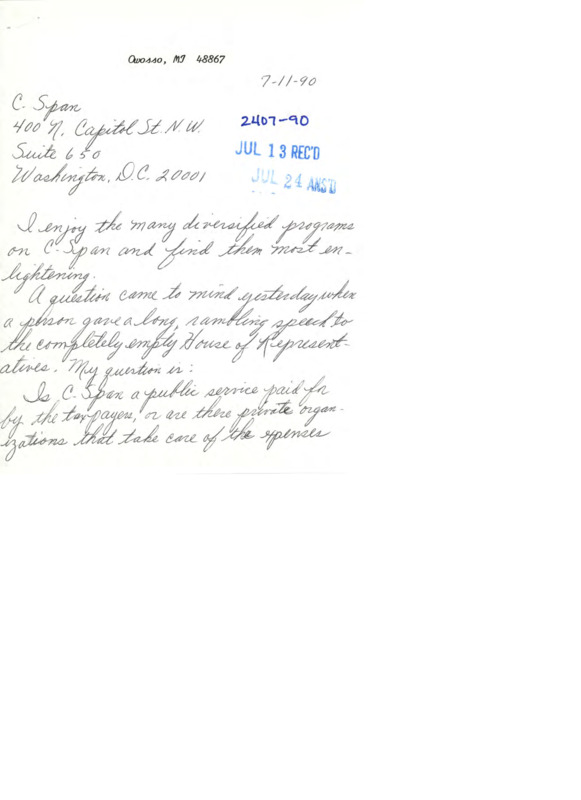 Owosso, MI 48867
7-11-90
C. Span
400 N. Capitol St. N.W.
Suite 650
Washington, D.C. 20001
2407-90
JUL 13 REC'D
JUL 24 ANS'D
I enjoy the many diversified programs
on C-Span and find them most en-
lightening.
A question came to mind yesterday when
a person gave a long, rambling speech to
the completely empty House of Represent-
atives. My question is:
Is C-Span a public service paid for
by the tax-payers, or are there private organ-
izations that take care of the epenses